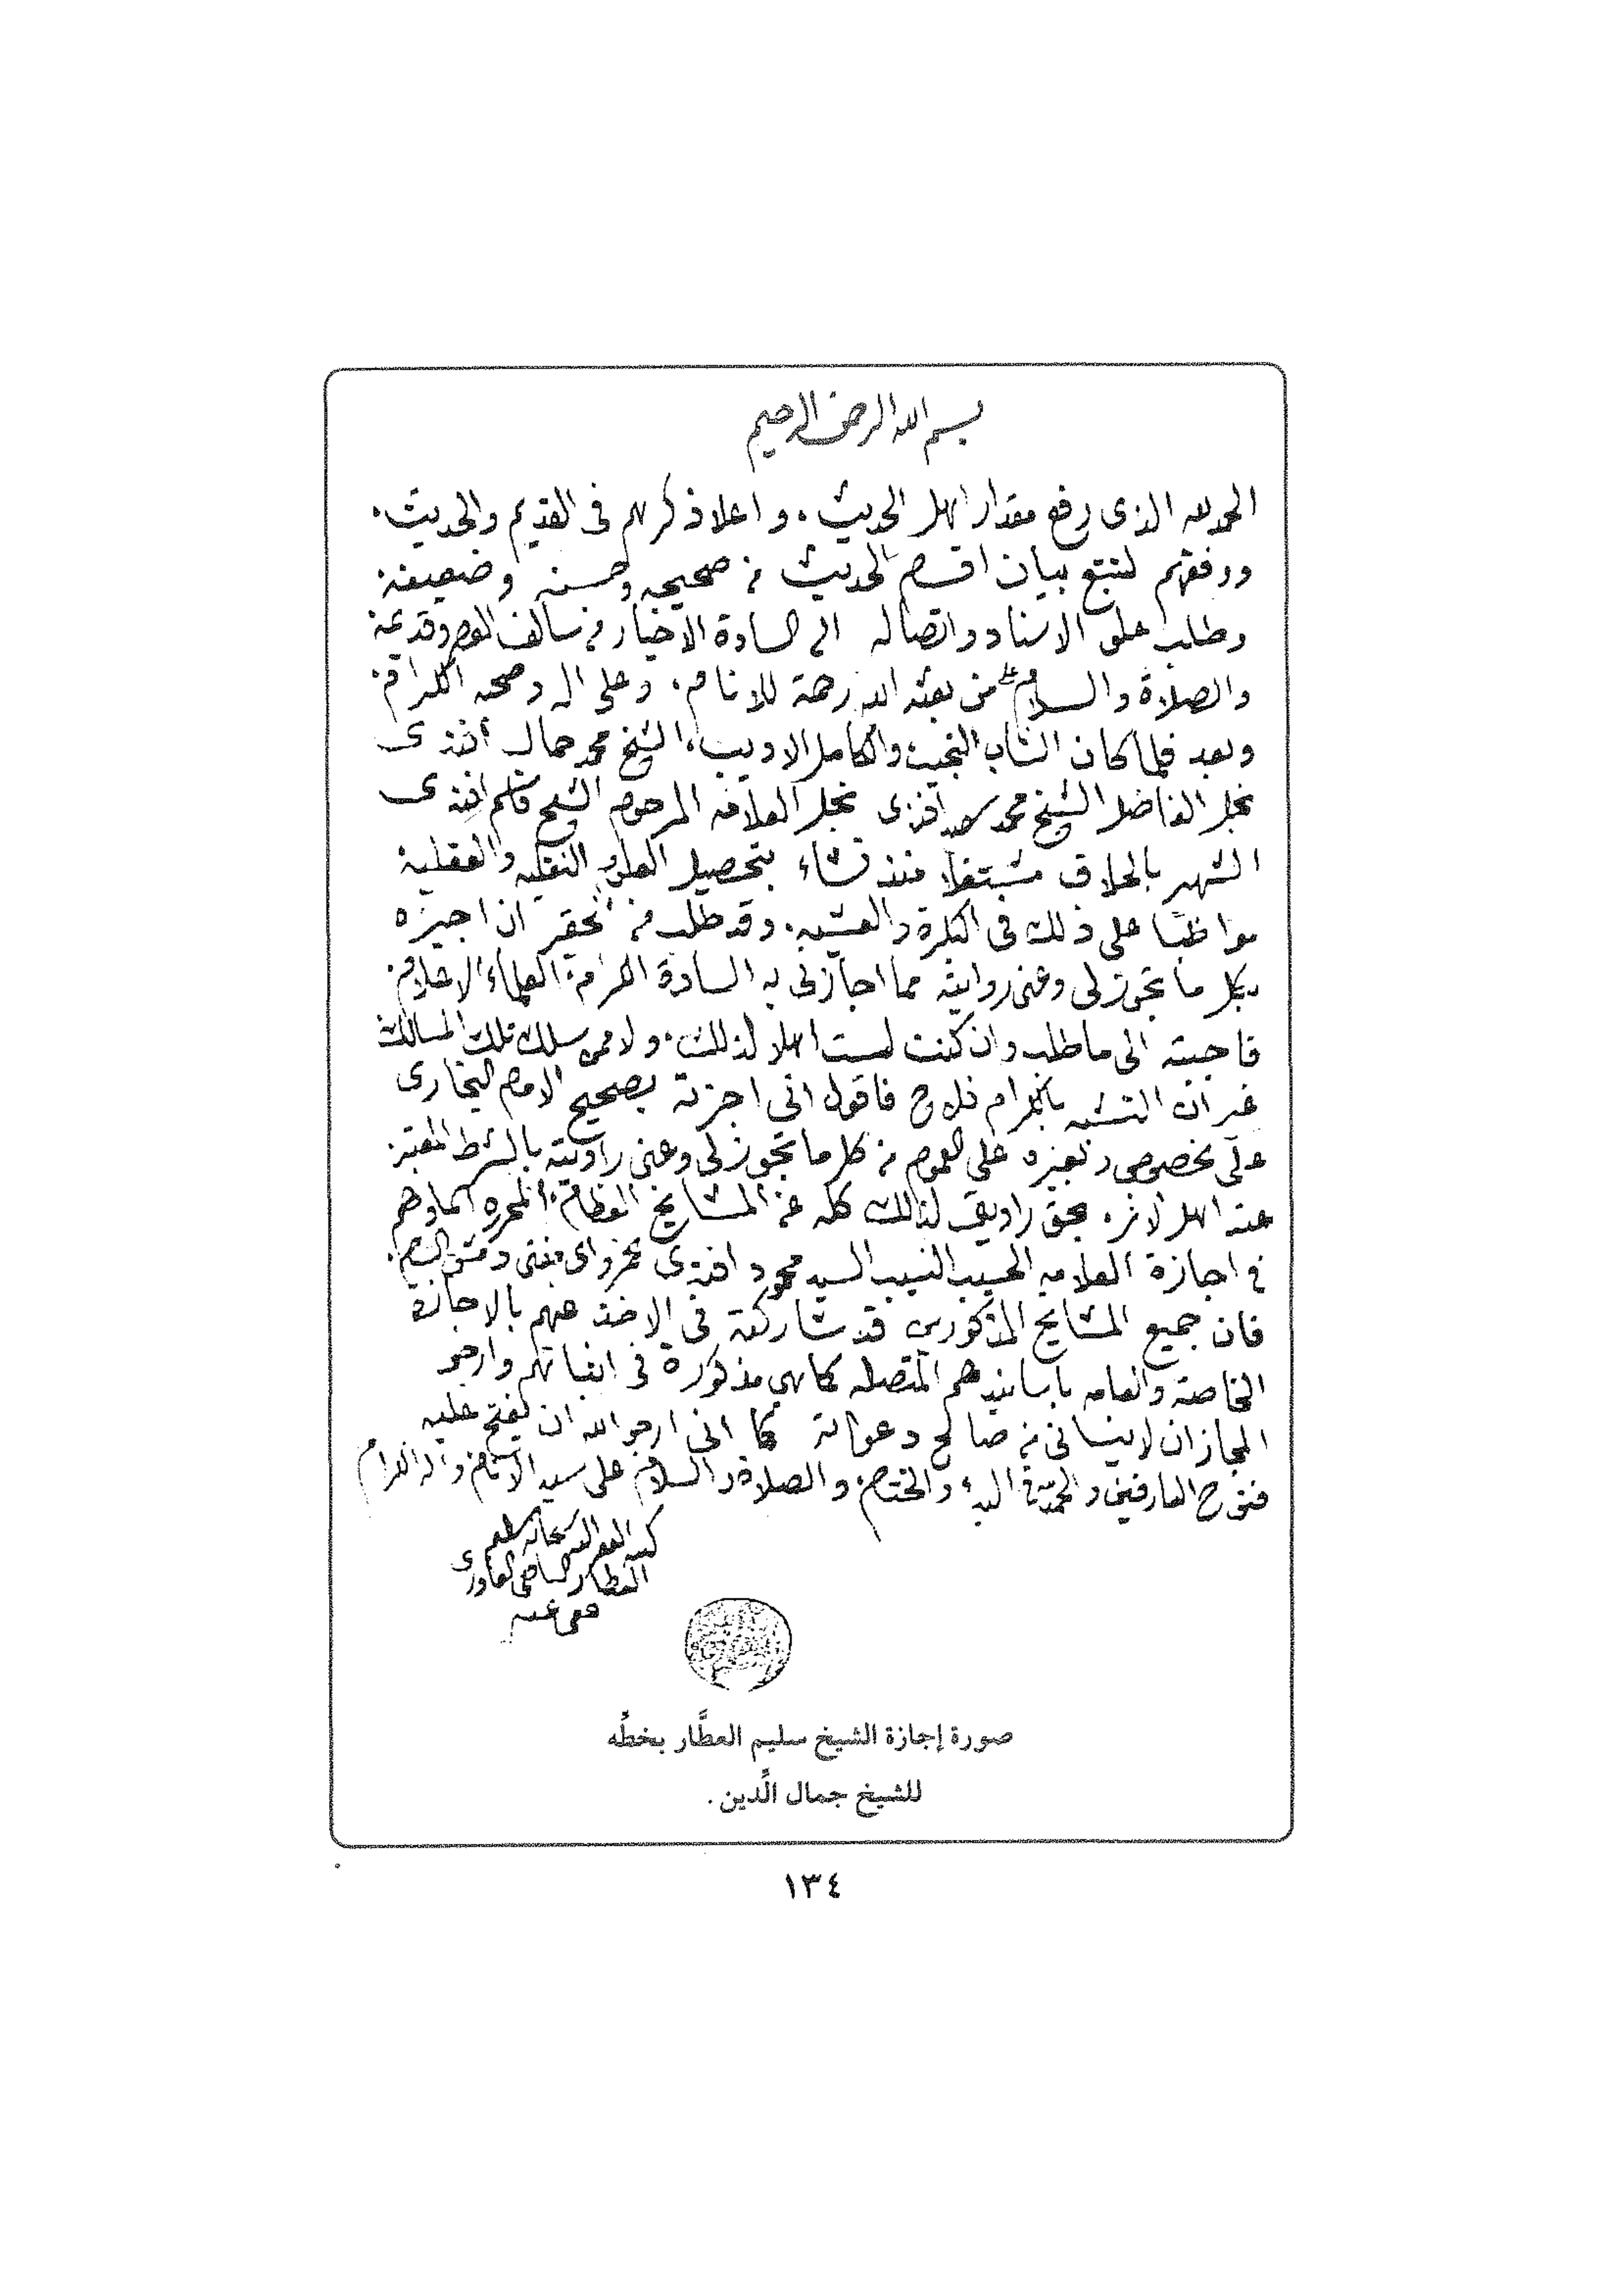 بسم الله الرحمن الرحيم
الحمد لله الذى رفع مقدار اهل الحديث. و اعلا ذكرهم فى القديم والحديث.
ووفقهم لتتبع بيان اقسام الحديث من صحيحه وحسنه وضعيفه.
وطلب علو الاسناد واتصاله الى السادة الاخيار من سالف العصر وقديمه
والصلاة والسلام على من بعثه الله رحمة للانام. وعلى اله وصحبه الكرام.
وبعد فلما كان الشاب النجيب والكامل الاديب، الشيخ محمد جمال افندى
نجل الفاضل الشيخ محمد سعيد افندى نجل العلامه المرحوم الشيخ قاسم افندى
الشهير بالحلاق مشتغلا منذ نشاء بتحصيل العلوم النقليه والعقلية
مواظبا على ذلك فى البكرة والعشيه. وقد طلب من الحقير ان اجيزه
بكل ما تجوز لى وعنى روايته مما اجازنى به السادة الكرام. العلماء الاعلام.
فاجبته الى ما طلب وان كنت لست اهلا لذلك. ولا ممن سلك تلك المسالك
غير ان التشبه بالكرام فلاح فاقول انى اجزته بصحيح الامام البخارى
على الخصوص وبغيره على العموم من كل ما تجوز لى وعنى روايته بالشرط المعتبر
عند اهل الاثر. بحق روايتى لذلك كله عن المشايخ العظام. المحرره اسماوهم
فى اجازة العلامه الحسيب النسيب السيد محمود افندى حمزه مفتى دمشق الشام.
فان جميع المشايخ المذكورين قد شاركته فى الاخذ عنهم بالاجازة
الخاصة والعامه باسانيدهم المتصله كما هى مذكورة فى اثباتهم وارجو
المجاز ان لا ينسانى من صالح دعواته كما انى ارجو الله ان يفتح عليه
فتوح العارفين والحمد لله فى البدء والختام. والصلاة والسلام على سيد الانام واله الكرام
كتبه الفقير اليه سبحانه سليم
العطار الشافعى القادرى
عفى عنه
صورة إجازة الشيخ سليم العطَّار بخطِّه
للشيخ جمال الَّدين.
١٣٤